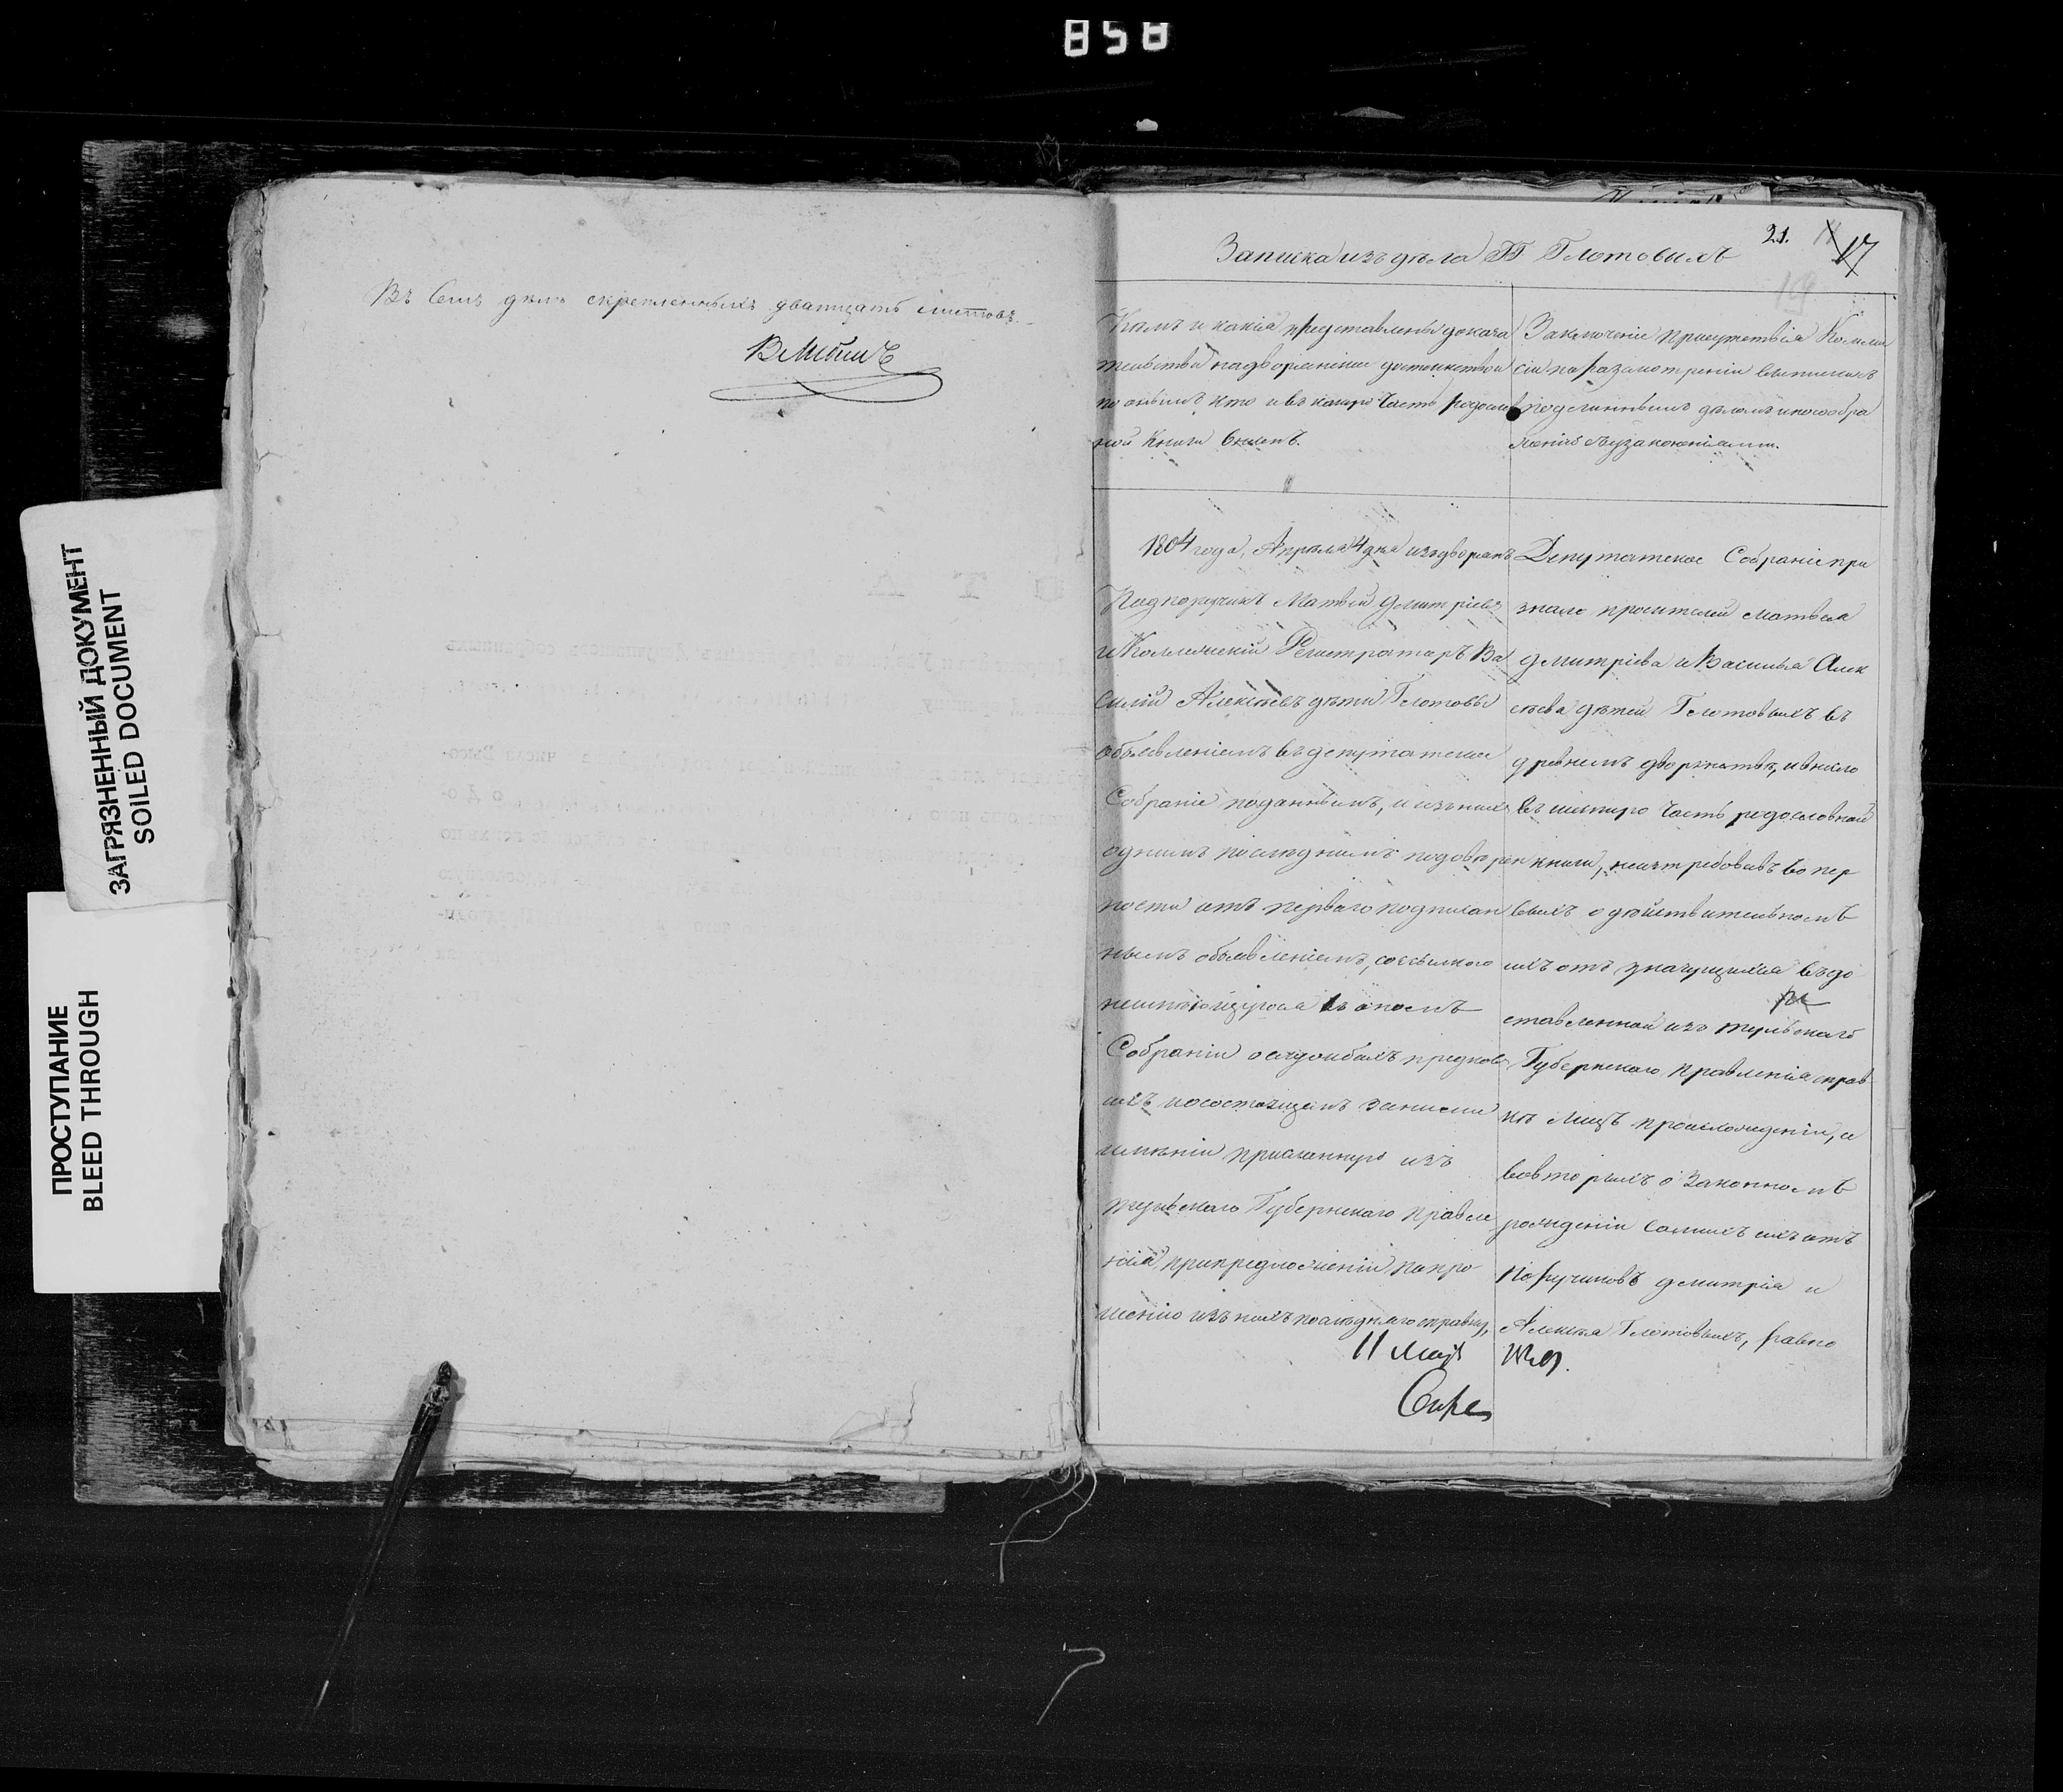 858
ЗАГРЯЗНЕННЫЙ ДОКУМЕНТ
SOILED DOCUMENT
ПРОСТУПАНИЕ
BLEED THROUGH
Въ семъ делѣ скрепленныхъ дватцать листовъ.
21. 17
19
Записка изъ дѣла Гг Глотовыхъ
Кемъ и какія представлены доказа
тельства на дворянское достоинство и
по онымъ кто и въ какую часть родослов
ной книги внесенъ.
Заключеніе присутствія Комми
сіи по разсмотреніи выписки съ
подлиннымъ дѣломъ и по сообра
женіи съ узаконеніями.
1804 года, Апреля 4 дня изъ дворянъ
Подпоручикъ Матвей Дмитріевъ
и Коллежскій Регистраторъ Ва
силій Алексѣевъ дѣти Глотовы
объявленіемъ въ депутатское
Собраніе поданнымъ, и изъ нихъ
однимъ последнимъ по доверен
ности отъ перваго подписан
нымъ объявленіемъ, со ссылкою
на имѣющуюся въ ономъ
Собраніи о службахъ предковъ
ихъ и о состоящемъ за ними
имѣніи присланную изъ
тульскаго Губернскаго Правле
нія, при предложеніи по про
шенію изъ нихъ последняго справку,
Депутатское Собраніе при
знало просителей Матвея
Дмитріева и Василья Алек
сѣева дѣтей Глотовыхъ въ
древнемъ дворянствѣ, и внесло
въ шестую часть родословной
книги, не истребовавъ во пер
выхъ о действительномъ
ихъ отъ значущихся въ до
ставленной изъ тульскаго
Губернскаго Правленія справ
кѣ лицъ происхожденіи, и
во вторыхъ о законномъ
рожденіи самихъ ихъ отъ
Поручиковъ Дмитрія и
Алексѣя Глотовыхъ, равно
11 Мая